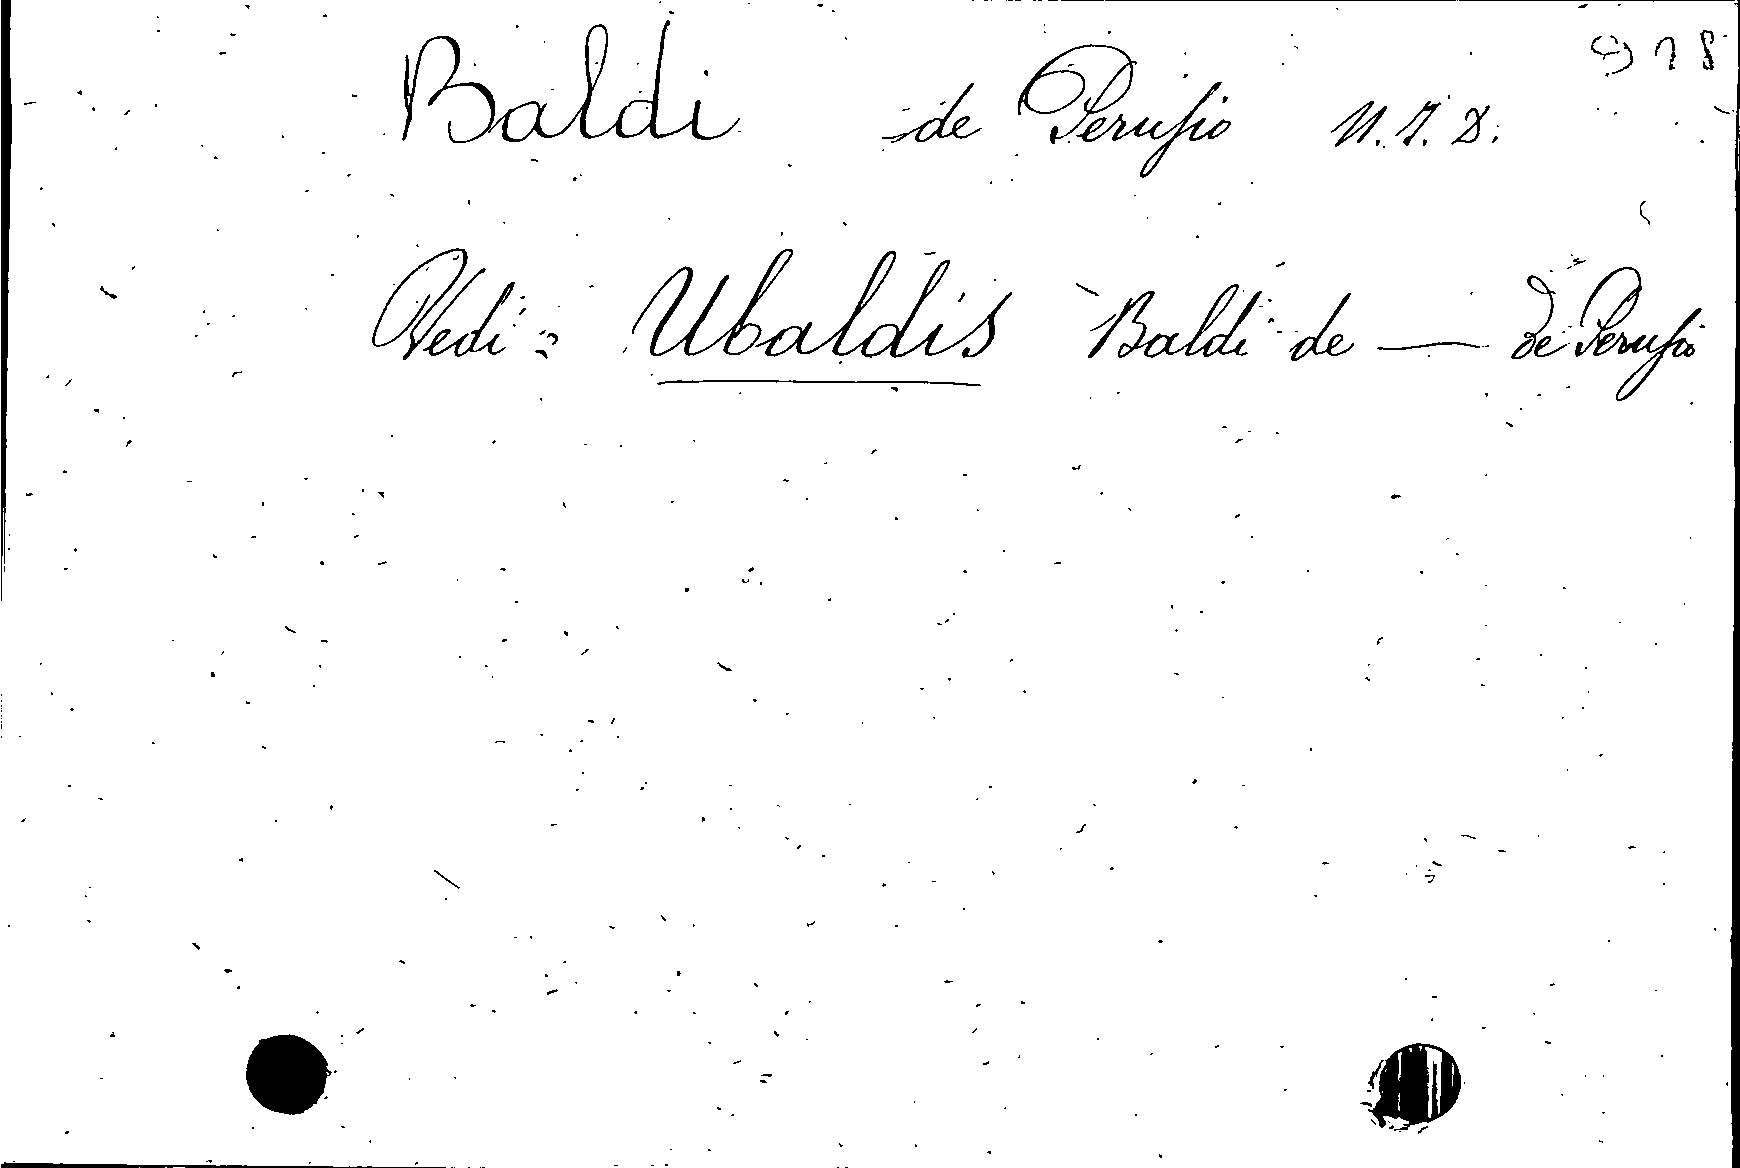 978
Baldi de Perusio U.J.D.
Vedi: Ubaldis Baldi de — de Perusio